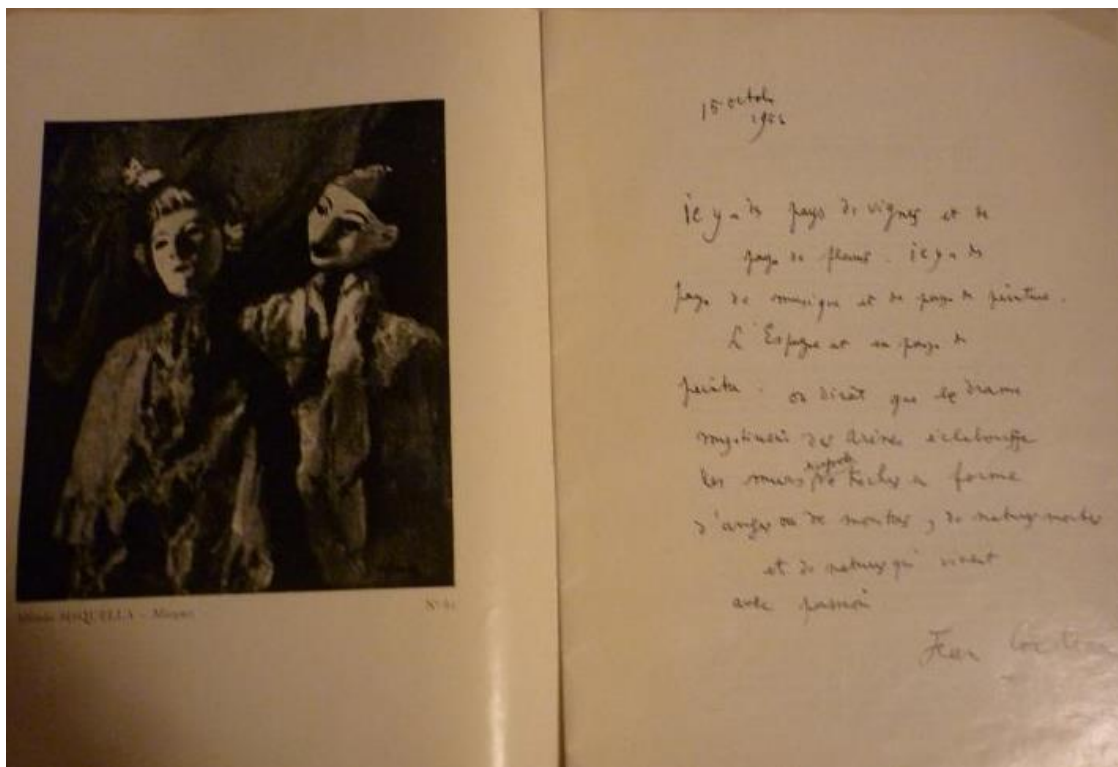 SISQUELLA –
N° 61
15 octobre
il y a des pays de vignes et de
pays de fleurs. il y a des
pays de musique et de pays de peinture.
L'Espagne est un pays de
peintres. on dirait que le drame
mystérieux des arènes éclabousse
les murs de taches en forme
d'anges ou de monstres, de natures mortes
et de natures qui vivent
avec passion
Jean Cocteau